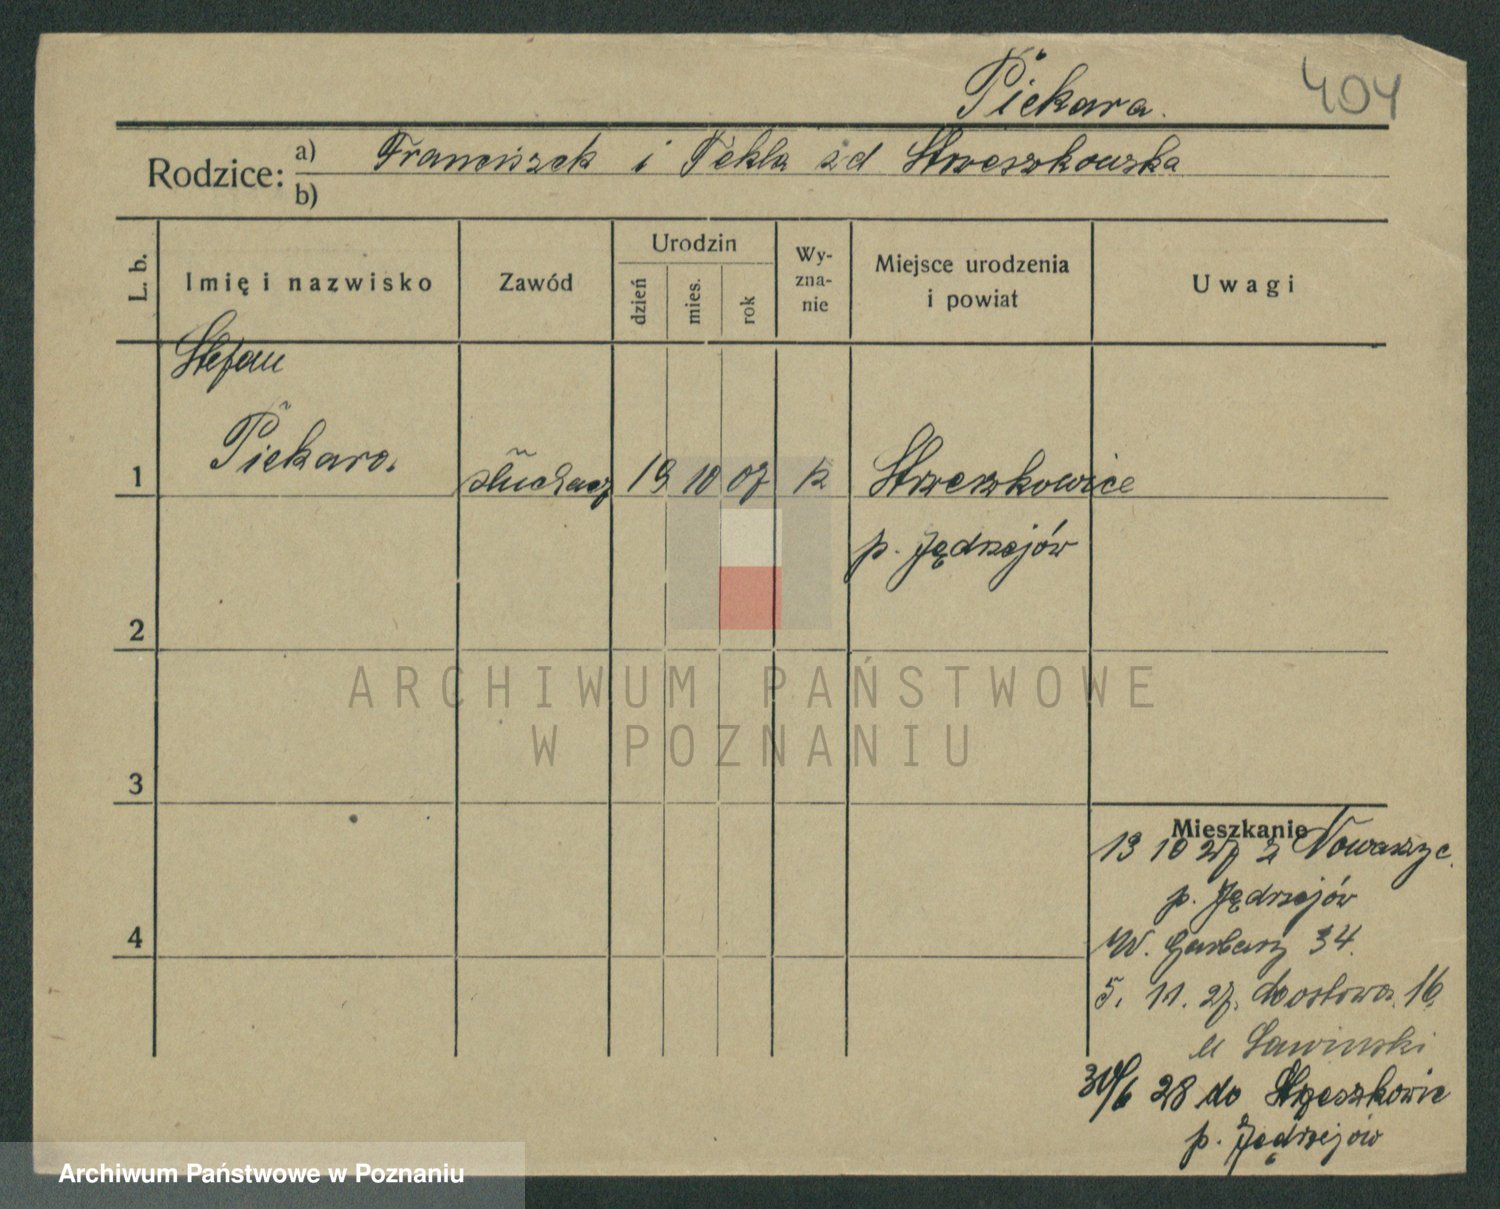 Piekara. 404
Rodzice: a) Franciszek i Tekla zd Strzeszkowska
b)
L. b. Imię i nazwisko Zawód Urodzin dzień mies. rok Wy-zna-nie Miejsce urodzenia i powiat Uwagi
Stefan
1 Piekara słuchacz 19 10 07 k Strzeszkowice
p. Jędrzejów
2
3
4
Mieszkanie
13 10 27 z
p. Jędrzejów
W. Garbary 34.
5. 11. 27. 16
u Ławinski
30/6 28 do Strzeszkowic
p. Jędrzejów
ARCHIWUM PAŃSTWOWE
W POZNANIU
Archiwum Państwowe w Poznaniu